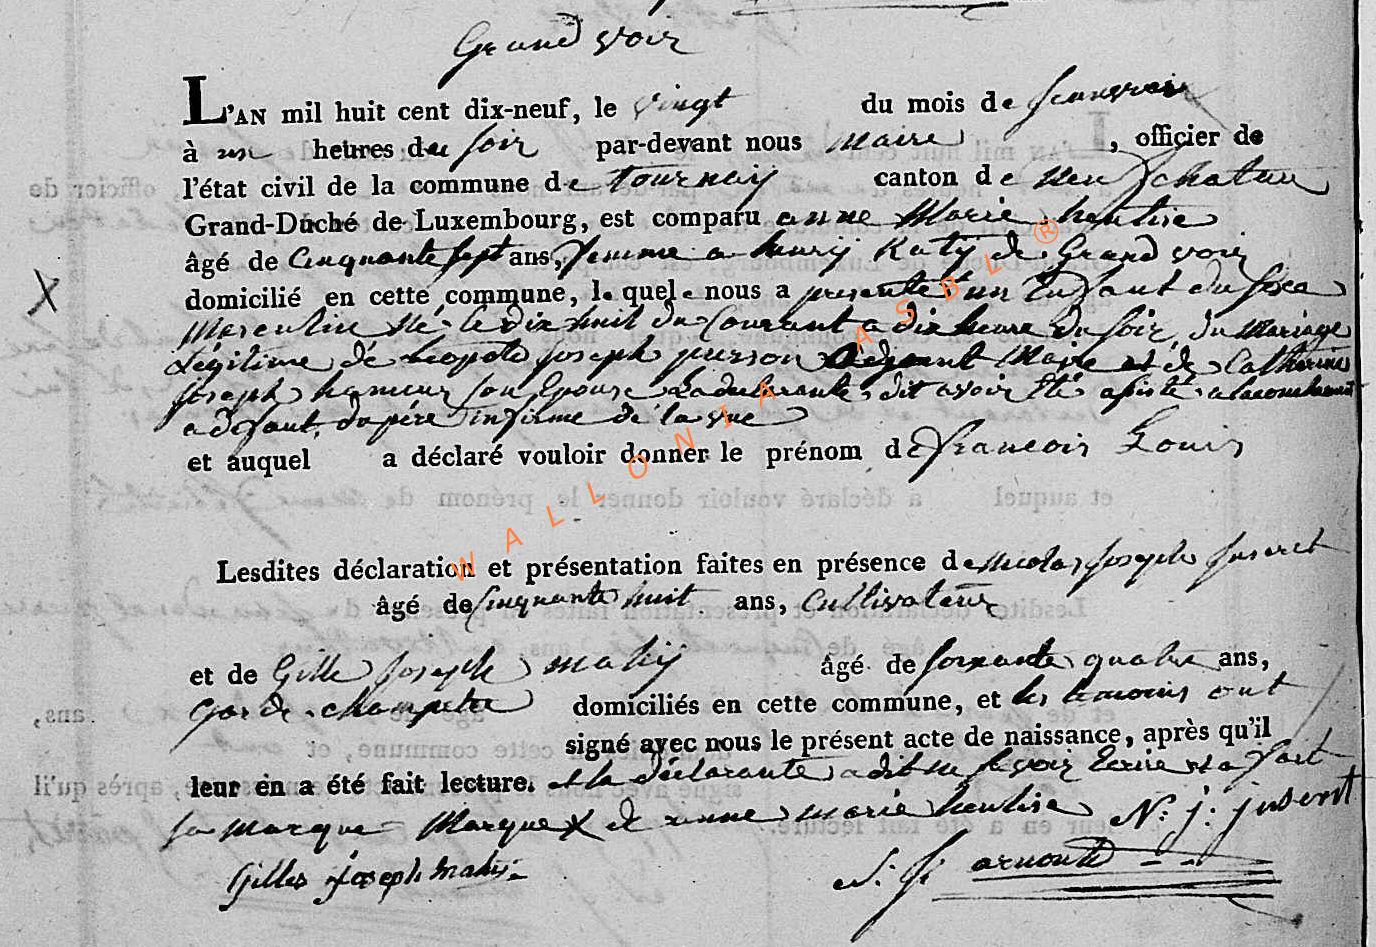 Grand voir
L'AN mil huit cent dix-neuf, le vingt du mois de Janvier
à un heures du soir par-devant nous maire, officier de
l'état civil de la commune de tournay canton de neufchateau
Grand-Duché de Luxembourg, est comparu anne Marie
âgé de Cinquante sept ans, femme a henry Katy de Grand voir
domicilié en cette commune, lequel nous a presenté un Enfant du sexe
Masculin né le dix huit du Courant a dix heure du soir, du Mariage
Légitime de Leopold joseph pierson Maire et de Catherine
joseph son Epouse La declarante dit avoir Eté asisté a lacouchement
a defaut du père infirme de la vue
et auquel a déclaré vouloir donner le prénom de francois Louis
Lesdites déclaration et présentation faites en présence de nicolas joseph juseret
âgé de Cinquante huit ans, Cultivateur
et de Gille joseph mahy âgé de soixante quatre ans,
Garde champetre domiciliés en cette commune, et les temoins ont
signé avec nous le présent acte de naissance, après qu'il
leur en a été fait lecture. et la déclarante a dit ne savoir Ecrire et a fait
sa marque Marque X de anne marie N: j: juseret
Gilles joseph mahy
arnould
WALLONIA ASBL ®